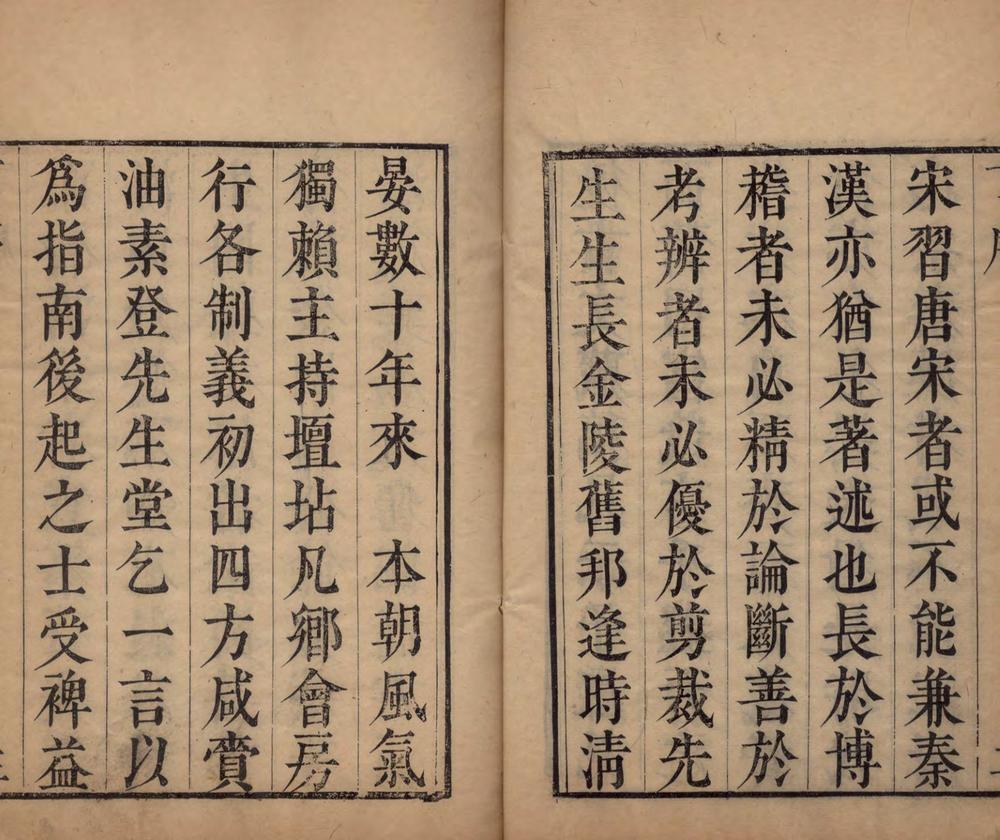 宋習唐宋者或不能兼秦
漢亦猶是著述也長於博
稽者未必精於論斷善於
考辨者未必優於剪裁先
生生長金陵舊邦逢時清
晏數十年來　本朝風氣
獨賴主持壇坫凡鄉會房
行各制義初出四方咸賫
油素登先生堂乞一言以
為指南後起之士受裨益